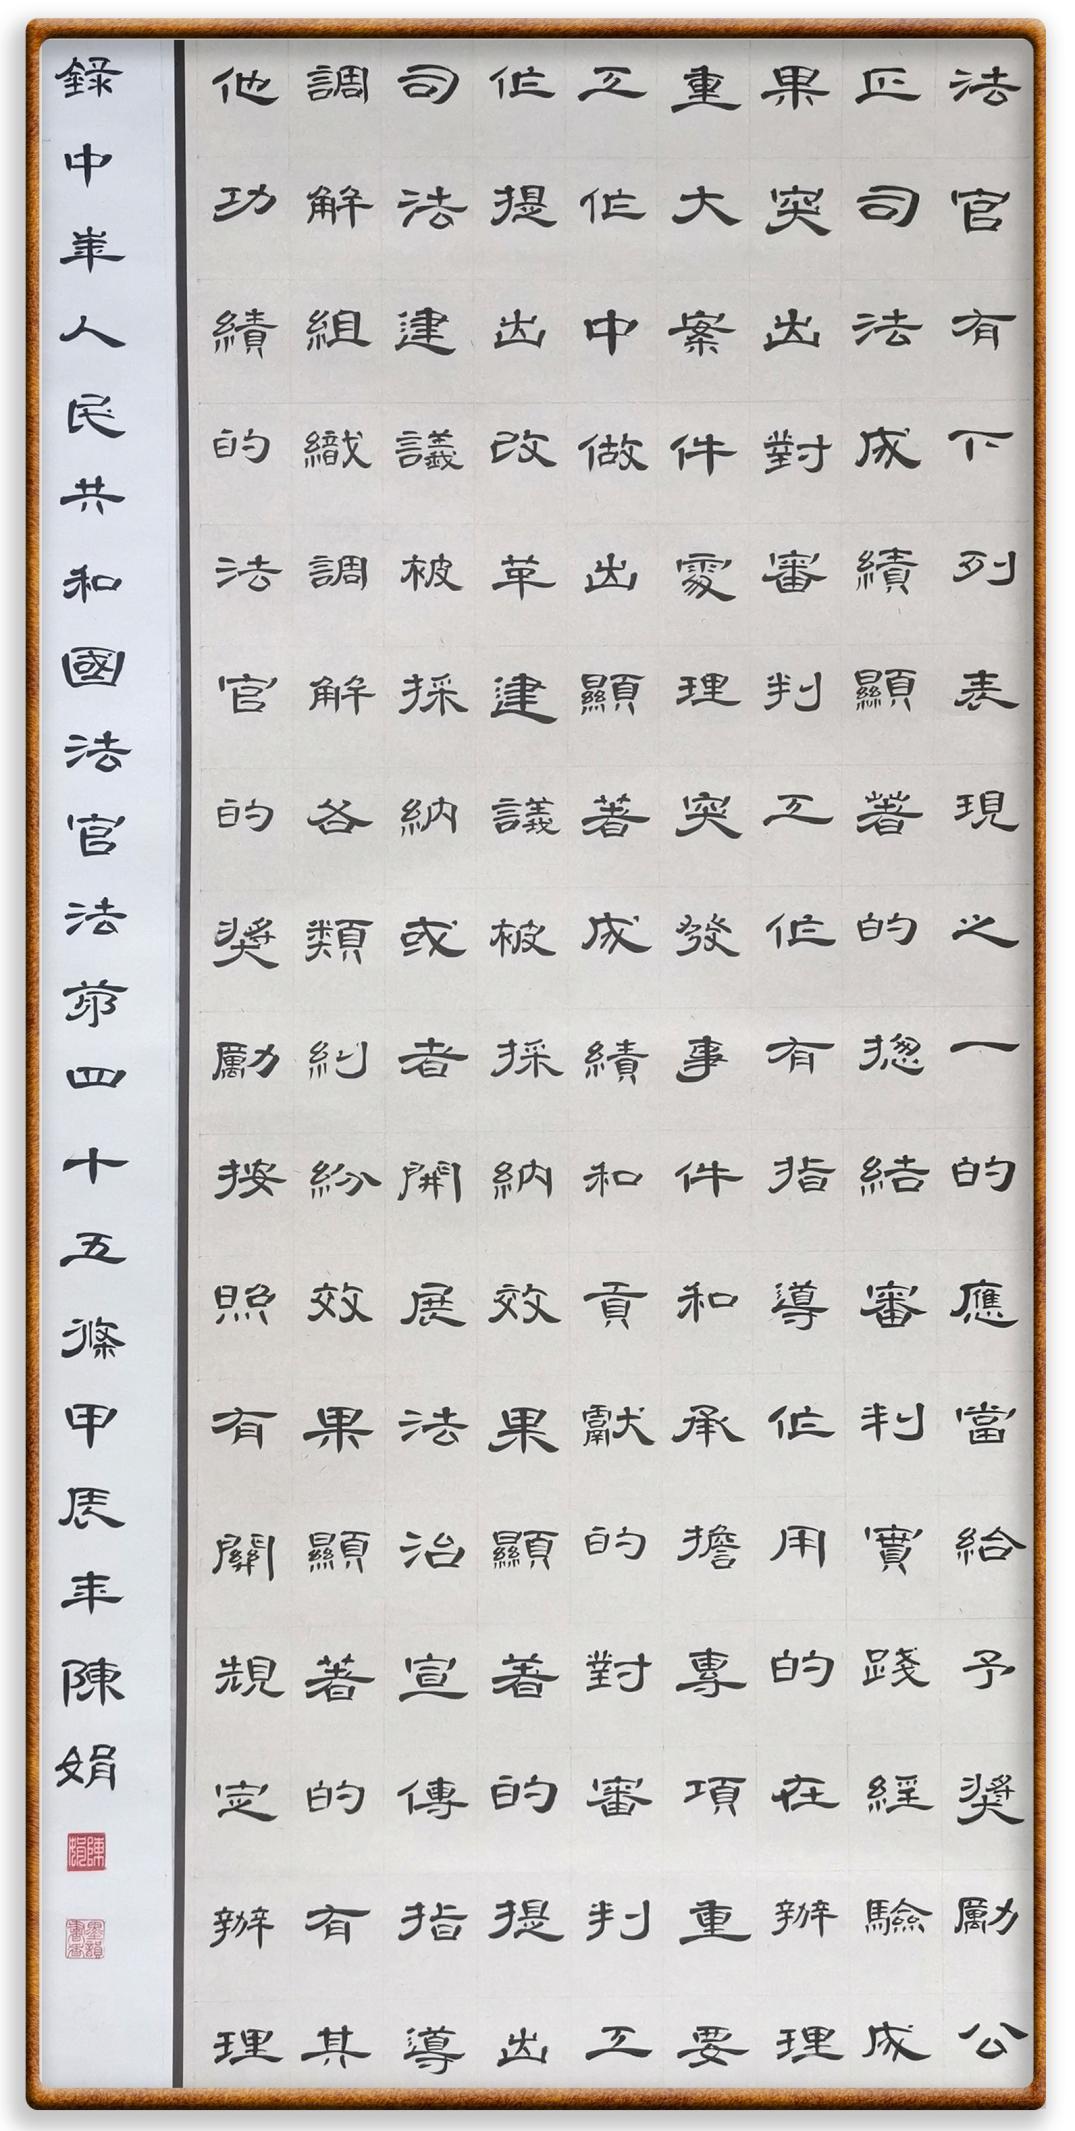 法官有下列表現之一的應當給予獎勵公
正司法成績顯著的總結審判實踐經驗成
果突出對審判工作有指導作用的在辦理
重大案件處理突發事件和承擔專項重要
工作中做出顯著成績和貢獻的對審判工
作提出改革建議被採納效果顯著的提出
司法建議被採納或者開展法治宣傳指導
調解組織調解各類糾紛效果顯著的有其
他功績的法官的獎勵按照有關規定辦理
錄中華人民共和國法官法第四十五條甲辰年陳娟
陳娟
墨韻書香